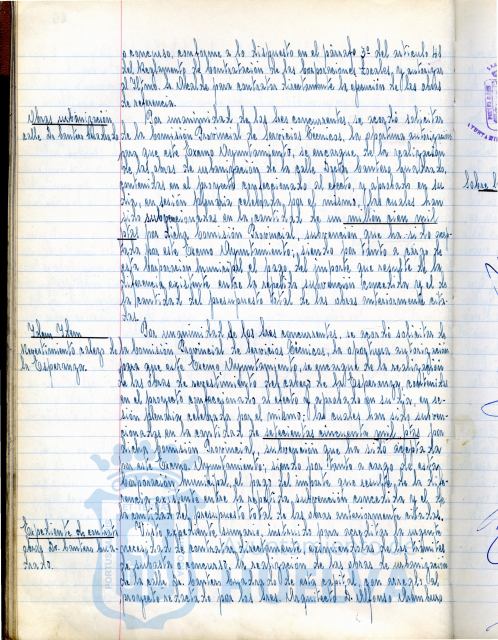 o concurso, conforme a lo dispuesto en el párrafo 3º del artículo 41
del Reglamento de Contratación de las Corporaciones Locales, y autorizar
al Iltmo. Sr. Alcalde para contratar directamente la ejecución de las obras
de referencia.
Obras urbanización
calle de Santos
Por unanimidad de los Sres. concurrentes, se acordó solicitar
de la Comisión Provincial de Servicios Técnicos, la oportuna autorización
para que este Excmo. Ayuntamiento, se encargue de la realización
de las obras de urbanización de la calle
contenidas en el proyecto confeccionado al efecto, y aprobado en su
día, en sesión plenaria celebrada, por el mismo; las cuales han
sido subvencionadas en la cantidad de un millón cien mil
ptas. por dicha Comisión Provincial, subvención que ha sido acep-
tada por este Excmo. Ayuntamiento, siendo por tanto a cargo de
esta Corporación municipal el pago del importe que resulte de la
diferencia existente entre la repetida subvención concedida y el de
la cantidad del presupuesto total de las obras anteriormente cita-
das.
Idem Idem
Revestimiento calzo de
la Esperanza.
Por unanimidad de los Sres. concurrentes, se acordó solicitar de
la Comisión Provincial de Servicios Técnicos, la oportuna autorización
para que este Excmo. Ayuntamiento, se encargue de la realización
de las obras de revestimiento del de la Esperanza, contenidas
en el proyecto confeccionado al efecto y aprobado en su día, en se-
sión plenaria celebrada por el mismo; las cuales han sido subven-
cionadas en la cantidad de setecientas cincuenta mil ptas. por
dicha Comisión Provincial, subvención que ha sido aceptada
por este Excmo. Ayuntamiento; siendo por tanto a cargo de esta
Corporación municipal el pago del importe que resulte, de la dife-
rencia existente entre la repetida subvención concedida y el de
la cantidad del presupuesto total de las obras anteriormente citadas.
Expediente de
obras de
Visto expediente sumario instruido para acreditar la urgente
necesidad de contratar directamente de los trámites
de subasta o concurso, la realización de las obras de urbanización
de la calle de de esta capital, con arreglo al
proyecto redactado por los Sres. Arquitecto D. Alfonso
Sobre